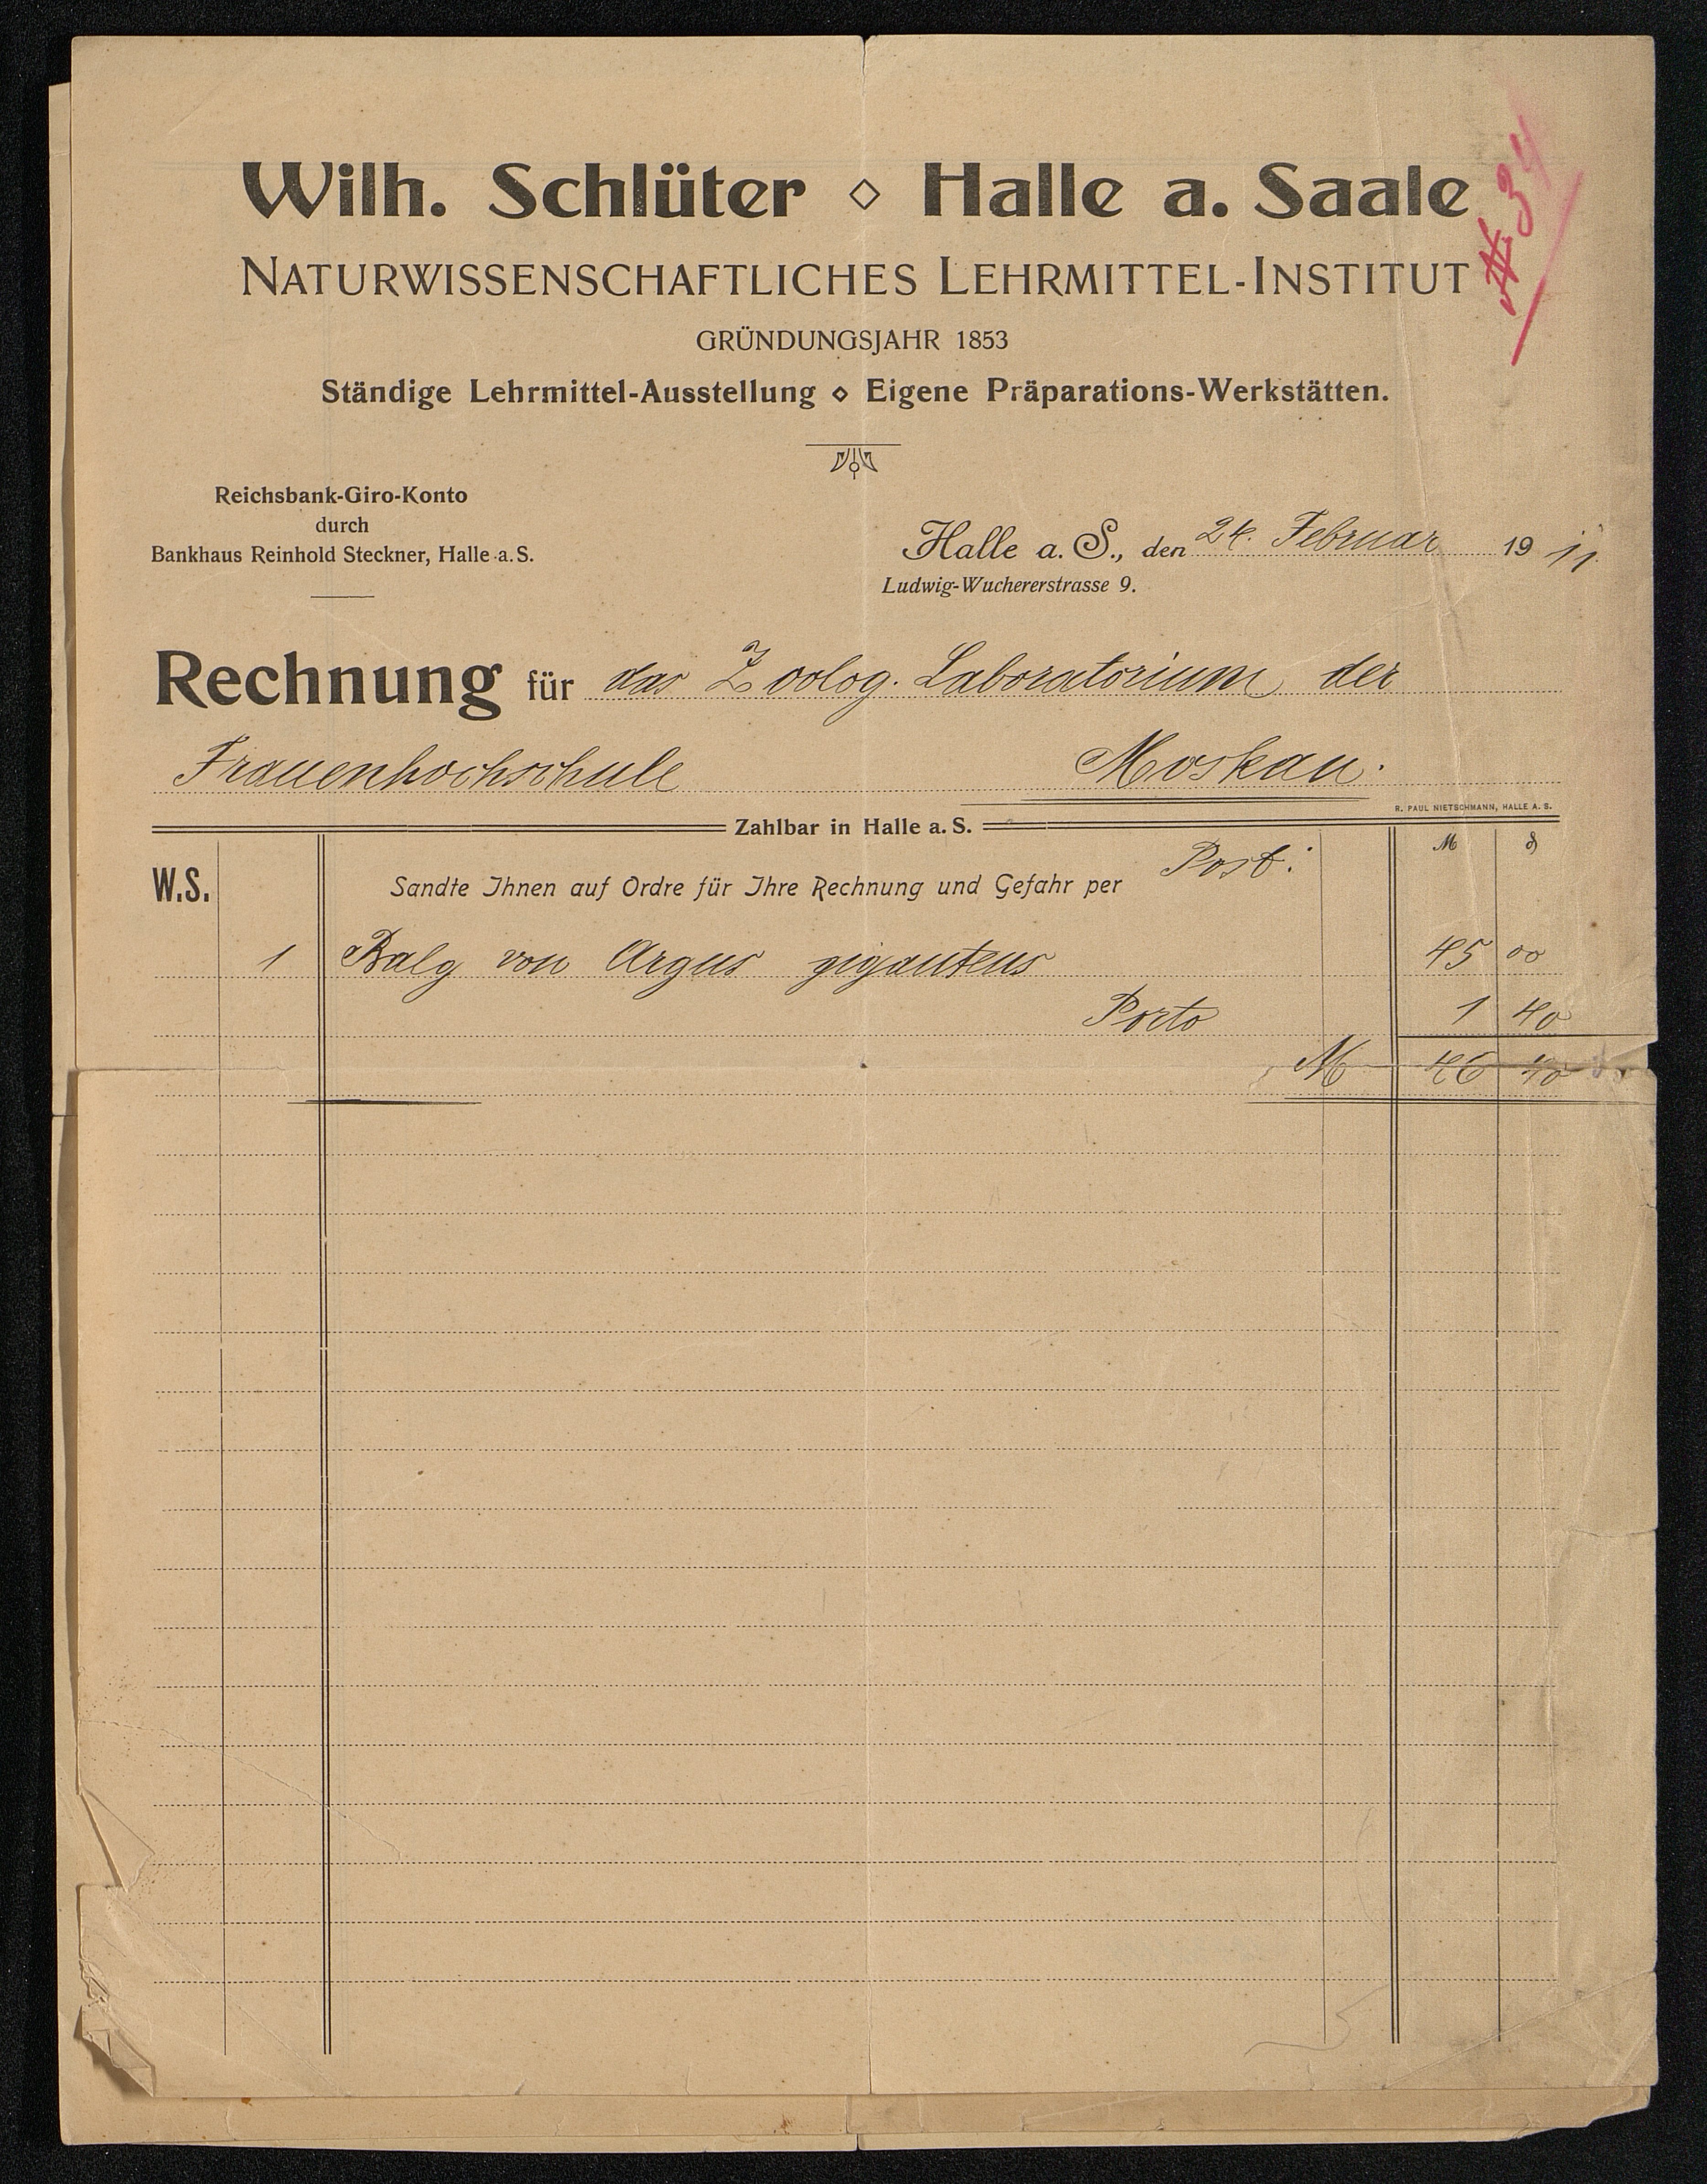 Wilh. Schlüter ◇ Halle a. Saale
NATURWISSENSCHAFTLICHES LEHRMITTEL-INSTITUT
GRÜNDUNGSJAHR 1853
Ständige Lehrmittel-Ausstellung ◇ Eigene Präparations-Werkstätten.
№ 34
Reichsbank-Giro-Konto
durch
Bankhaus Reinhold Steckner, Halle a. S.
Halle a. S., den 24. Februar 1911.
Ludwig-Wuchererstrasse 9.
Rechnung für das Zoolog. Laboratorium der
Frauenhochschule Moskau.
R. PAUL NIETSCHMANN, HALLE A. S.
Zahlbar in Halle a. S.
M ₰
W.S. Sandte Ihnen auf Ordre für Ihre Rechnung und Gefahr per Post:
1 Balg von Argus giganteus 45 00
Porto 1 40
M 46 40